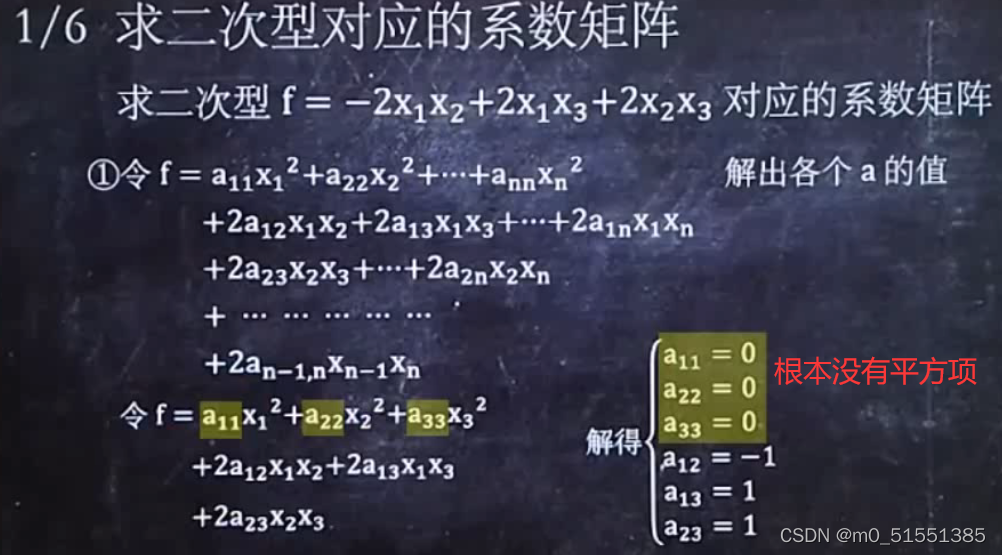 1/6 求二次型对应的系数矩阵
求二次型 f = −2x₁x₂+2x₁x₃+2x₂x₃ 对应的系数矩阵
①令 f = a₁₁x₁²+a₂₂x₂²+⋯+aₙₙxₙ² 解出各个 a 的值
+2a₁₂x₁x₂+2a₁₃x₁x₃+⋯+2a₁ₙx₁xₙ
+2a₂₃x₂x₃+⋯+2a₂ₙx₂xₙ
+ ⋯ ⋯ ⋯ ⋯ ⋯
+2aₙ₋₁,ₙxₙ₋₁xₙ
令 f = a₁₁x₁²+a₂₂x₂²+a₃₃x₃²
+2a₁₂x₁x₂+2a₁₃x₁x₃
+2a₂₃x₂x₃
解得
a₁₁ = 0
a₂₂ = 0
a₃₃ = 0
a₁₂ = −1
a₁₃ = 1
a₂₃ = 1
根本没有平方项
CSDN @m0_51551385